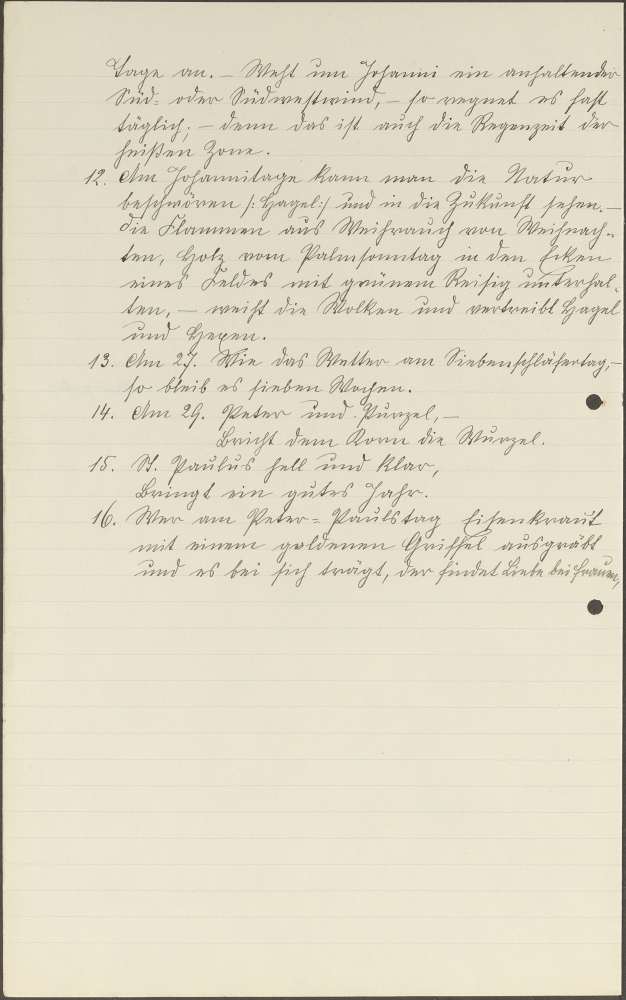 Tage an. – Weht um Johanni ein anhaltender
Süd- oder Südwestwind, – so regnet es fast
täglich; – denn das ist auch die Regenzeit der
heißen Zone.
12. Am Johannitage kann man die Natur
beschwören /: Hagel :/ und in die Zukunft sehen. –
Die Flammen aus Weihrauch von Weihnach-
ten, Holz vom Palmsonntag in den Ecken
eines Feldes mit grünem Reisig unterhal-
ten, – weiht die Wolken und vertreibt Hagel
und Hexen.
13. Am 27. Wie das Wetter am Siebenschläfertag, –
so bleib es sieben Wochen.
14. Am 29. Peter und Purzel, –
Bricht dem Korn die Wurzel.
15. St. Paulus hell und klar,
Bringt ein gutes Jahr.
16. Wer am Peter-Paulstag Eisenkraut
mit einem goldenen Griffel ausgräbt
und es bei sich trägt, der findet Liebe bei Frauen,